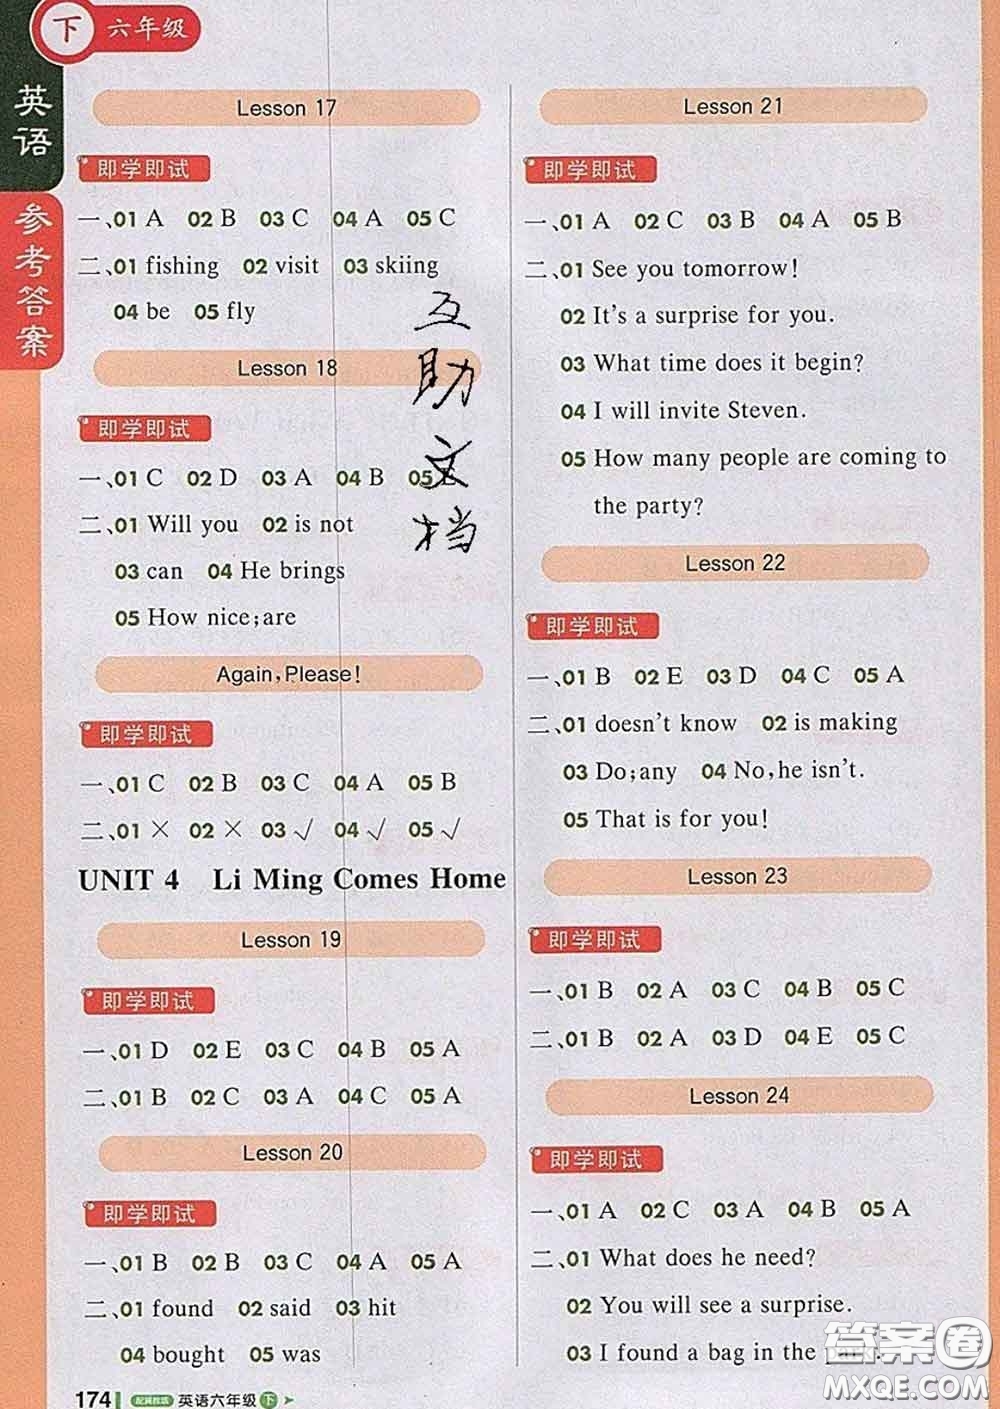 下 六年级
英语
参考答案
Lesson 17
即学即试
一、01 A 02 B 03 C 04 A 05 C
二、01 fishing 02 visit 03 skiing
04 be 05 fly
Lesson 18
即学即试
一、01 C 02 D 03 A 04 B 05
二、01 Will you 02 is not
03 can 04 He brings
05 How nice;are
Again,Please!
即学即试
一、01 C 02 B 03 C 04 A 05 B
二、01 × 02 × 03 √ 04 √ 05 √
UNIT 4 Li Ming Comes Home
Lesson 19
即学即试
一、01 D 02 E 03 C 04 B 05 A
二、01 B 02 C 03 A 04 C 05 A
Lesson 20
即学即试
一、01 B 02 B 03 C 04 A 05 A
二、01 found 02 said 03 hit
04 bought 05 was
互助文档
Lesson 21
即学即试
一、01 A 02 C 03 B 04 A 05 B
二、01 See you tomorrow!
02 It's a surprise for you.
03 What time does it begin?
04 I will invite Steven.
05 How many people are coming to
the party?
Lesson 22
即学即试
一、01 B 02 E 03 D 04 C 05 A
二、01 doesn't know 02 is making
03 Do;any 04 No,he isn't.
05 That is for you!
Lesson 23
即学即试
一、01 B 02 A 03 C 04 B 05 C
二、01 B 02 A 03 D 04 E 05 C
Lesson 24
即学即试
一、01 A 02 C 03 A 04 B 05 A
二、01 What does he need?
02 You will see a surprise.
03 I found a bag in the park.
174 配冀教版 英语六年级 下
答案圈
MXQE.COM